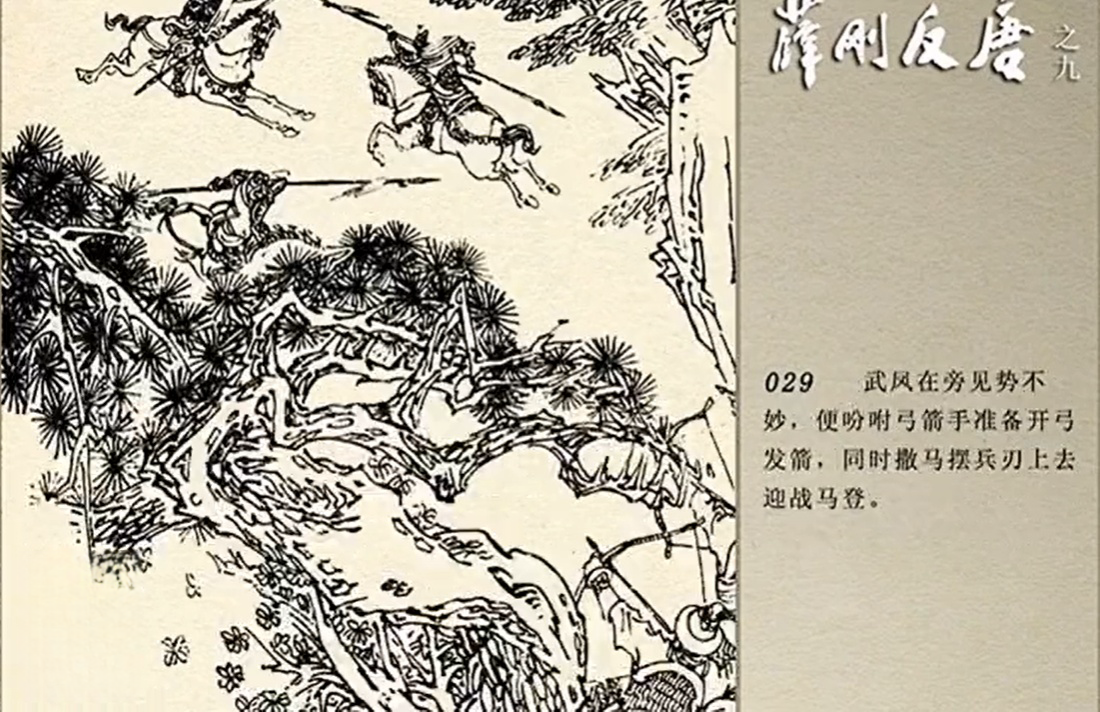 薛刚反唐
之九
029 武凤在旁见势不
妙，便吩咐弓箭手准备开弓
发箭，同时撒马摆兵刃上去
迎战马登。